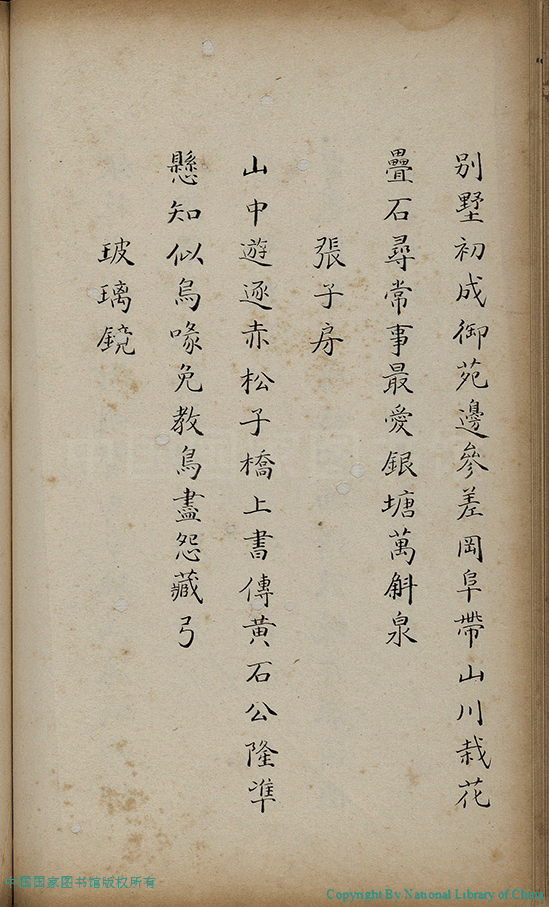 别墅初成御苑邊參差岡阜帶山川栽花
疊石尋常事最愛銀塘萬斛泉
張子房
山中遊逐赤松子橋上書傳黄石公隆準
懸知似鳥喙免教鳥盡怨藏弓
玻璃鏡
中国国家图书馆版权所有
Copyright By National Library of China